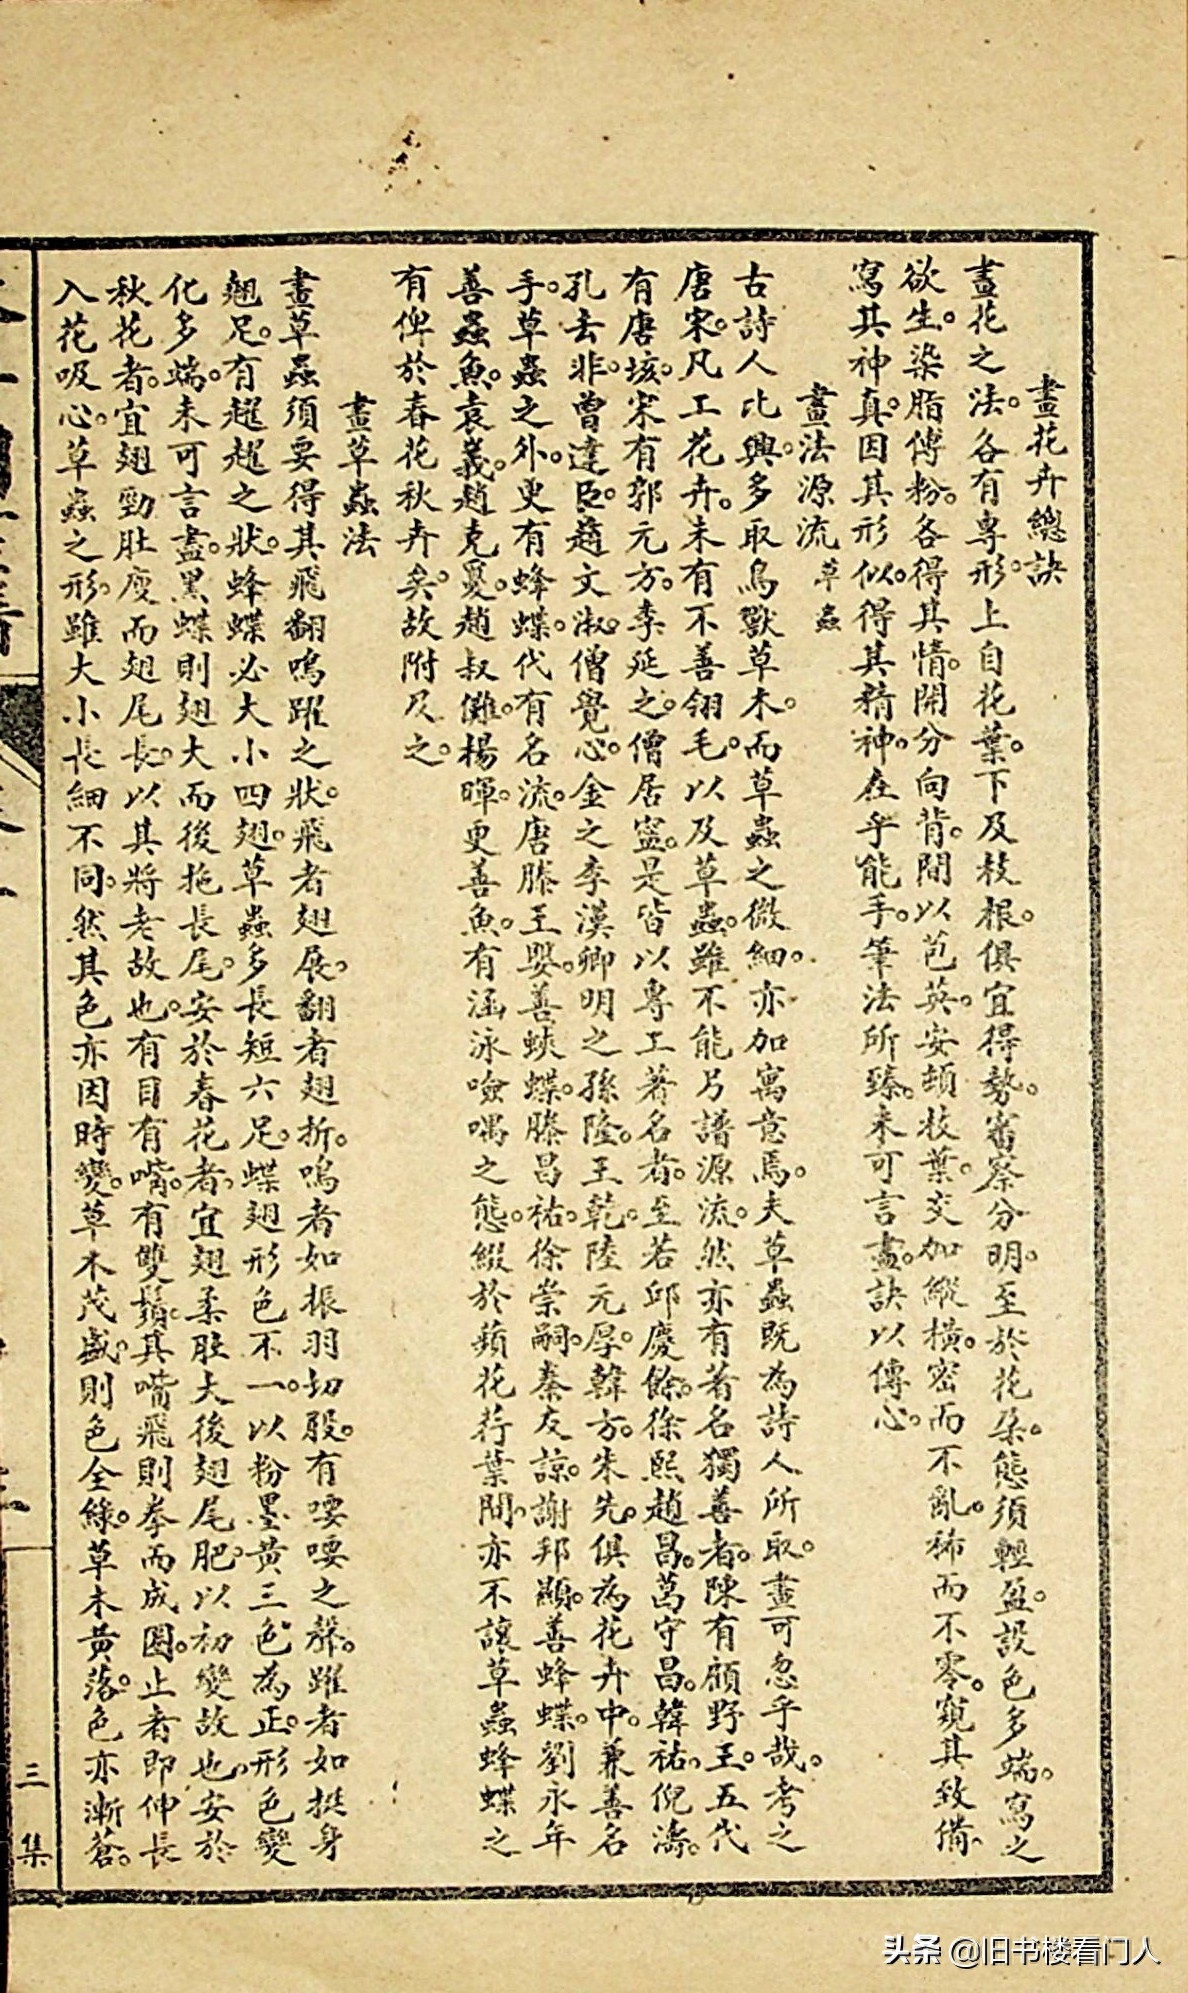 畫花卉總訣
畫花之法。各有專形。上自花葉。下及枝根。俱宜得勢。審察分明。至於花朵。態須輕盈。設色多端。寫之
欲生。染脂傅粉。各得其情。開分向背。間以苞英。安頓枝葉。交加縱橫。密而不亂。稀而不零。窺其致備。
寫其神真。因其形似。得其精神。在乎能手。筆法所臻。未可言盡。訣以傳心。
畫法源流 草蟲
古詩人比興。多取鳥獸草木。而草蟲之微細。亦加寓意焉。夫草蟲既為詩人所取。畫可忽乎哉。考之
唐宋。凡工花卉。未有不善翎毛。以及草蟲。雖不能分譜源流。然亦有著名獨善者。陳有顧野王。五代
有唐垓。宋有郭元方。李延之。僧居寍。是皆以專工著名者。至若邱慶餘。徐熙趙昌。葛守昌。韓祐。倪濤。
孔去非。曾達臣。趙文淑。僧覺心。金之李漢卿明之孫隆。王乾。陸元厚。韓方。朱先。俱為花卉中。兼善名
手。草蟲之外。更有蜂蝶。代有名流。唐滕王嬰。善蛺蝶。滕昌祐。徐崇嗣。秦友諒。謝邦顯。善蜂蝶。劉永年
善蟲魚。袁羲。趙克夐。趙叔儺。楊暉。更善魚。有涵泳噞喁之態。綴於蘋花荇葉間。亦不讓草蟲蜂蝶之
有俾於春花秋卉矣。故附及之。
畫草蟲法
畫草蟲須要得其飛翻鳴躍之狀。飛者翅展。翻者翅折。鳴者如振羽切股。有喓喓之聲。躍者如挺身
翹足。有趯趯之狀。蜂蝶必大小四翅。草蟲多長短六足。蝶翅形色不一。以粉墨黄三色為正。形色變
化多端。未可言盡。黑蝶則翅大而後拖長尾。安於春花者。宜翅柔肚大後翅尾肥。以初變故也。安於
秋花者。宜翅勁肚廋而翅尾長。以其將老故也。有目有嘴。有雙鬚。其嘴飛則拳而成圈。止者即伸長
入花吸心。草蟲之形。雖大小長細不同。然其色亦因時變。草木茂盛。則色全綠。草木黄落。色亦漸蒼。
三集
头条 @旧书楼看门人